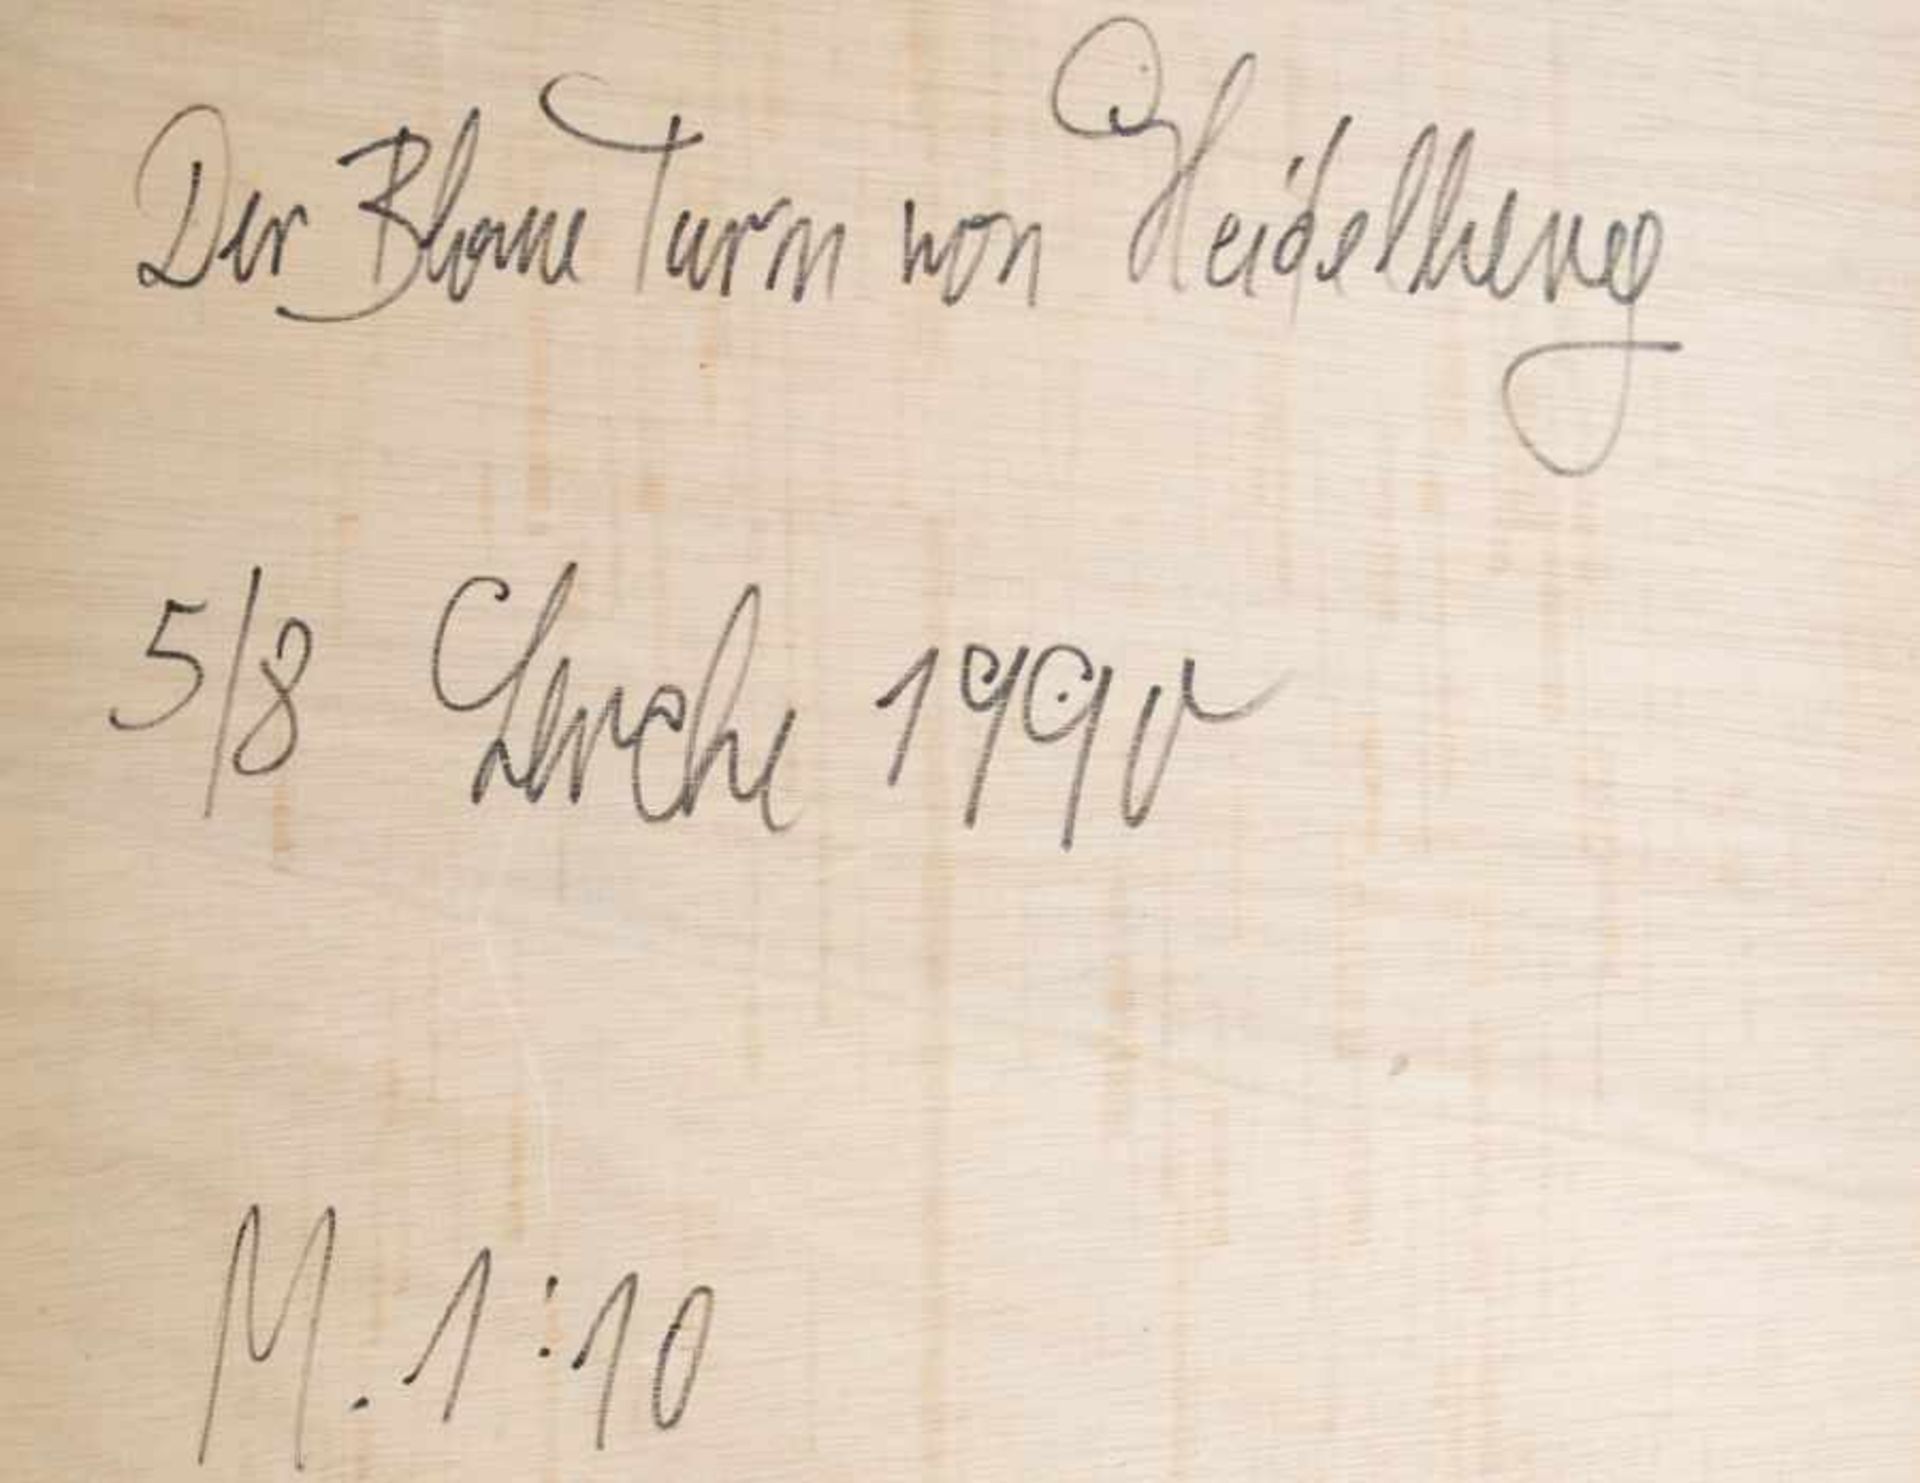 Der Blaue Turm von Heidelberg
5/8 Lerche 1990
M. 1:10